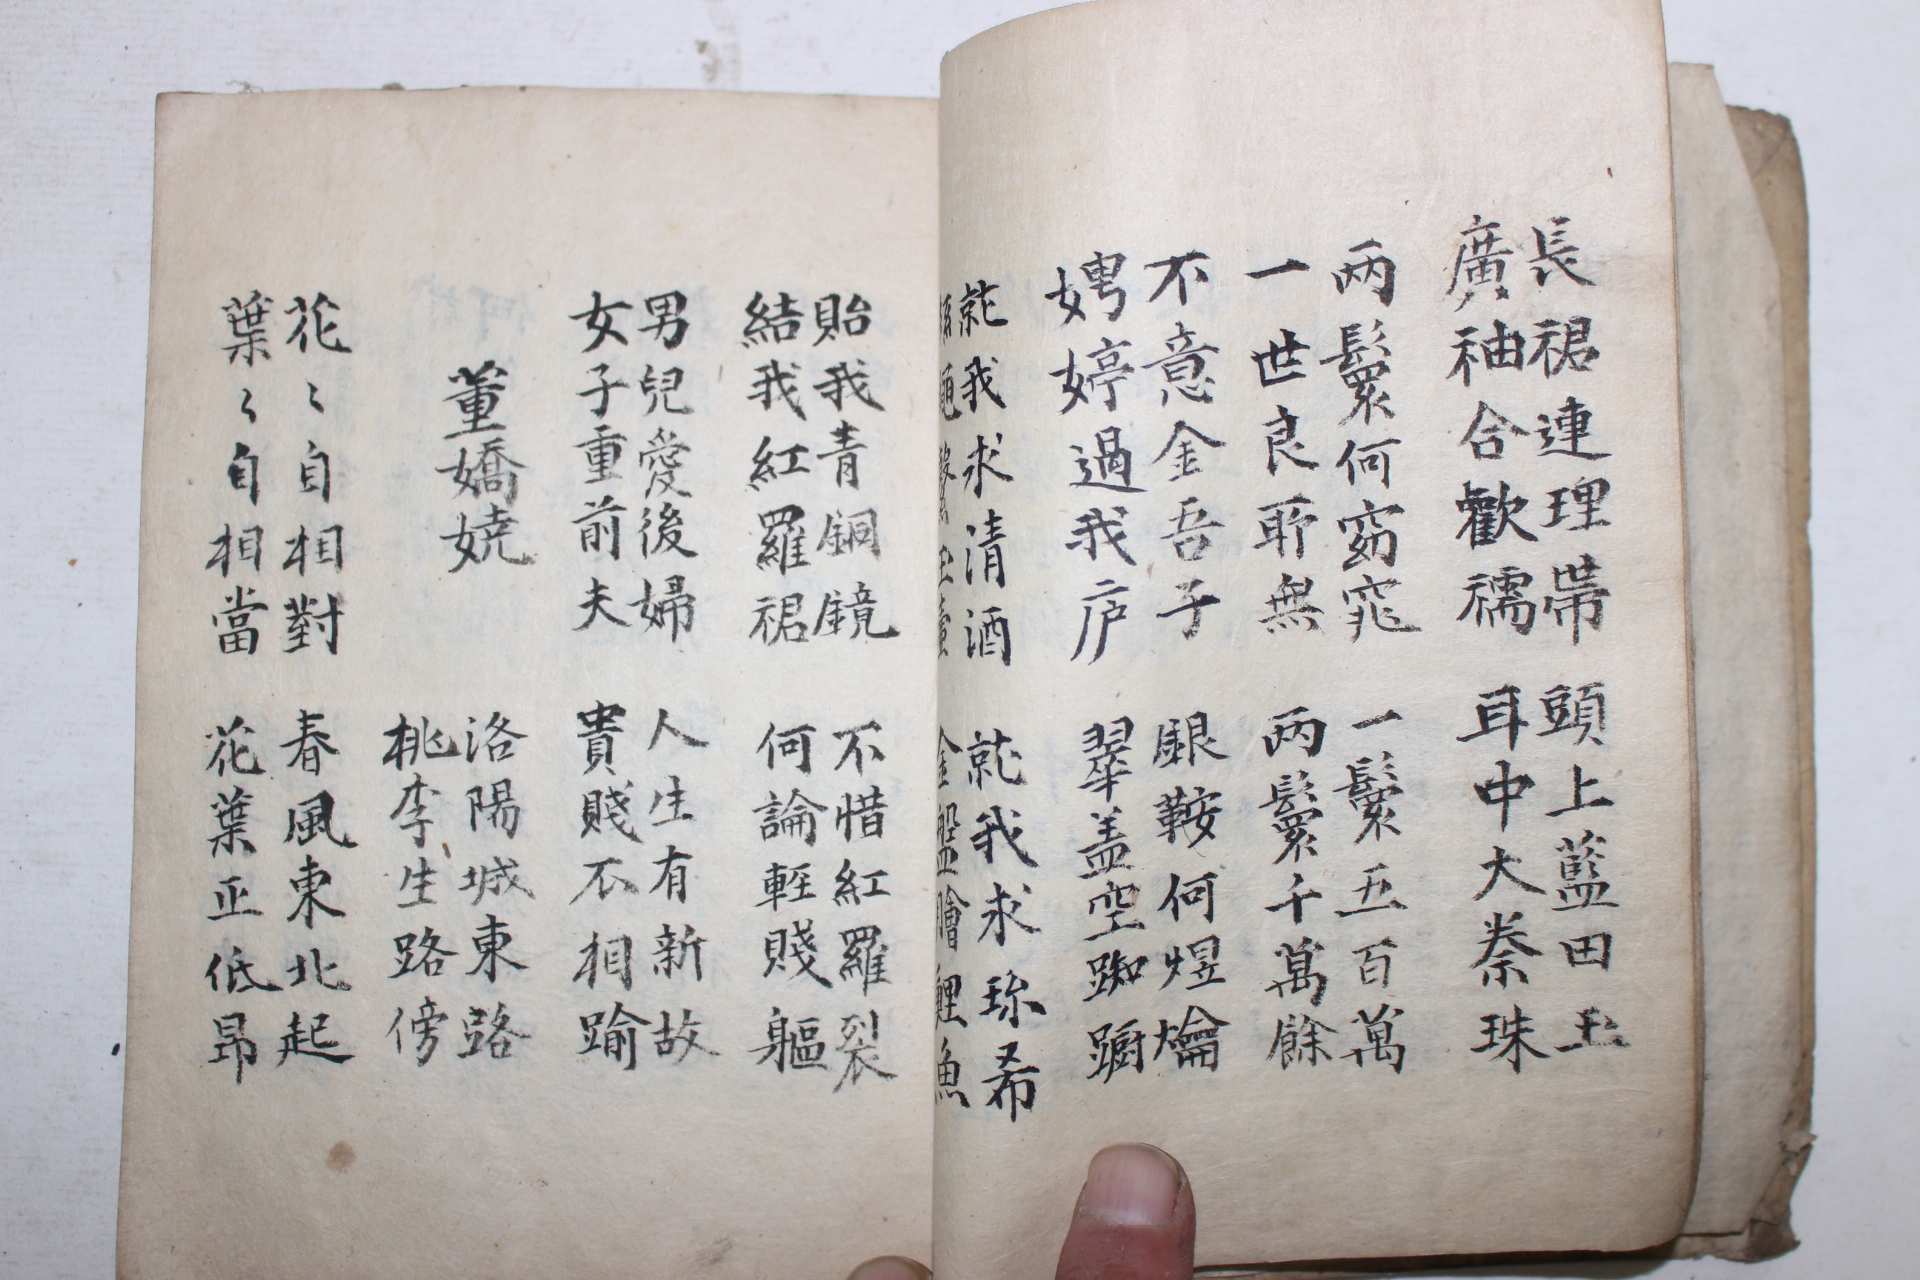 長裙連理帶 頭上藍田玉
廣袖合歡襦 耳中大秦珠
兩鬟何窈窕 一鬟五百萬
一世良耶無 兩鬟千萬餘
不意金吾子 銀鞍何煜爚
娉婷過我庐 翠盖空踟躕
就我求清酒 就我求珎希
絲 玉壺 金盤膾鯉魚
貽我青銅鏡 不惜紅羅裂
結我紅羅裙 何論輊賤軀
男兒愛後婦 人生有新故
女子重前夫 貴賤不相踰
董嬌娆
洛陽城東路
桃李生路傍
花〻自相對 春風東北起
葉〻自相當 花葉正低昂